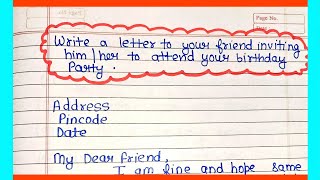 Page No.
Write a letter to your friend inviting
him/her to attend your birthday
Party.
Address
Pincode
Date
My Dear friend,
I am fine and hope same